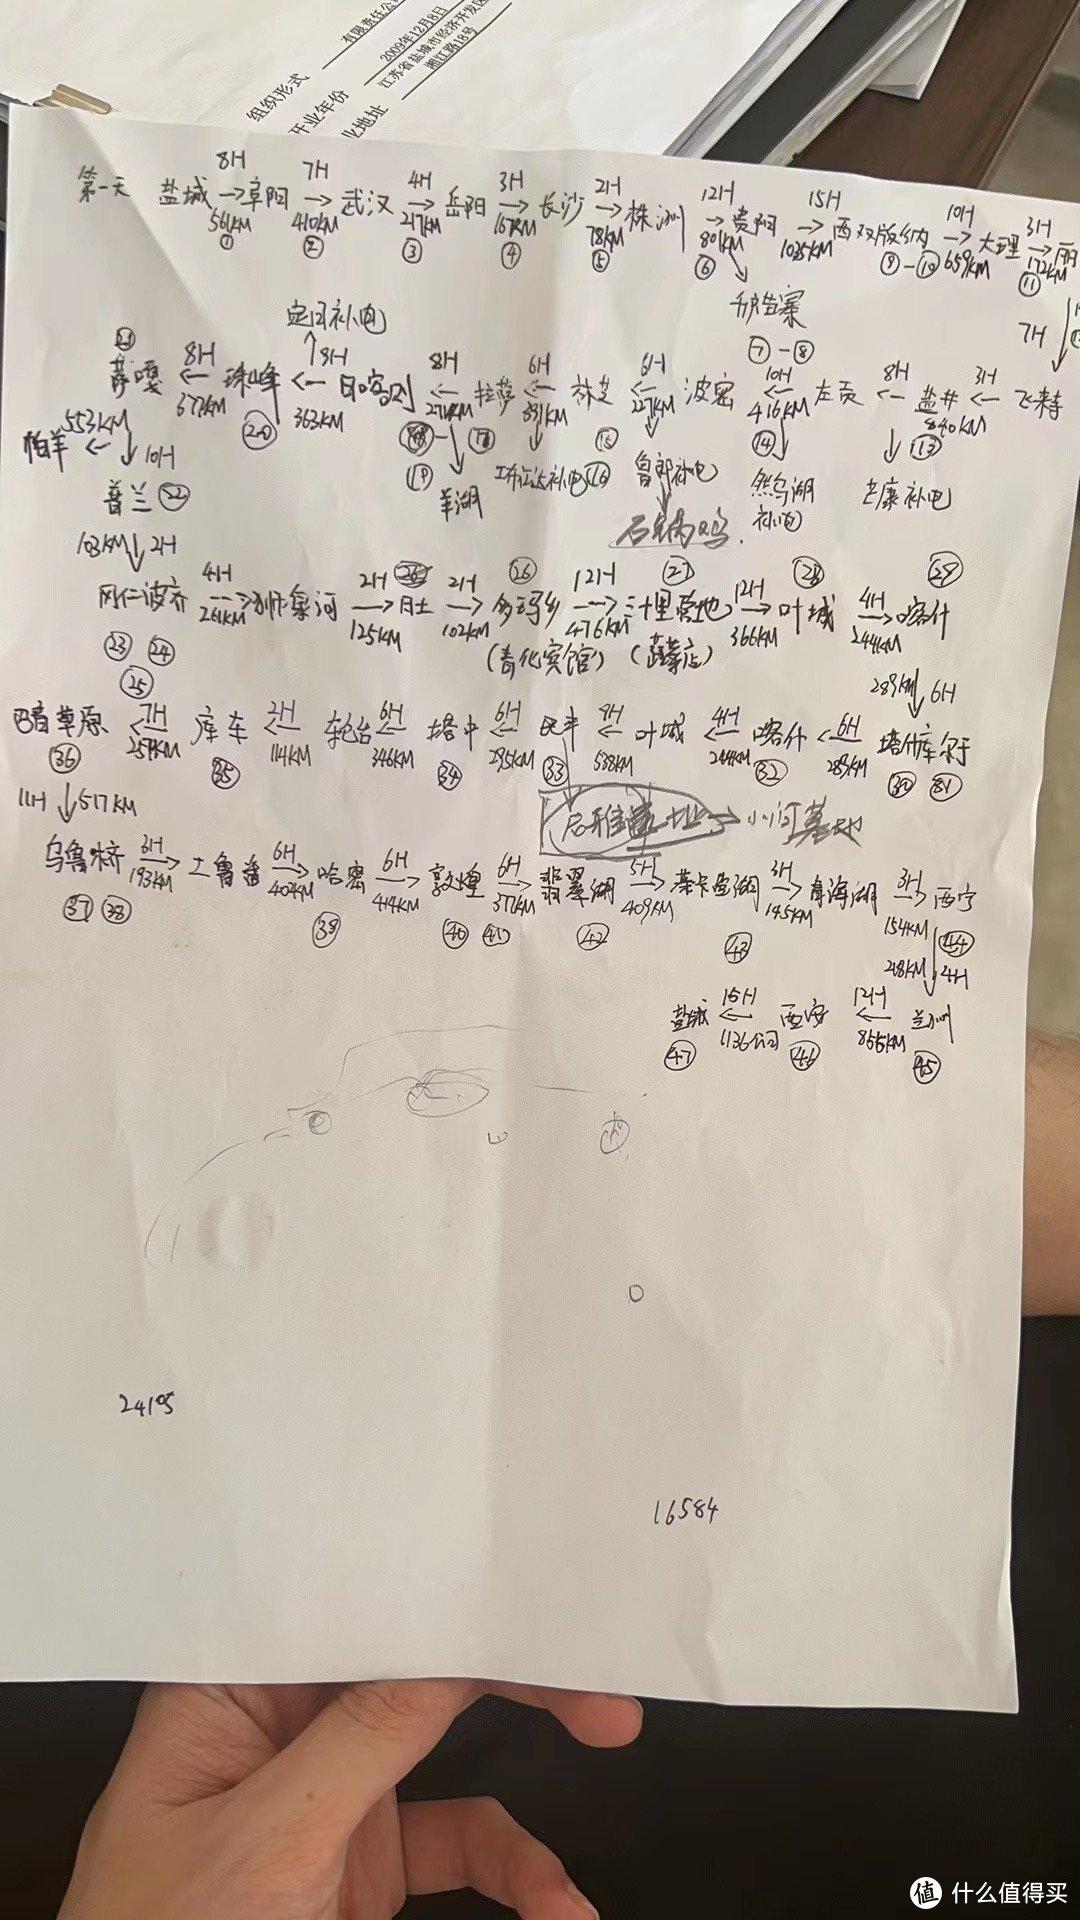 组织形式
有限责任公
开业年份
2009年12月8日
业地址
江苏省盐城市经济开发区
湘江路18号
8H 7H 4H 3H 2H 12H 15H 10H 3H
第一天 盐城 → 阜阳 → 武汉 → 岳阳 → 长沙 → 株洲 → 贵阳 → 西双版纳 → 大理 → 丽
561KM 410KM 217KM 167KM 78KM 801KM 1025KM 659KM 172KM
① ② ③ ④ ⑤ ⑥ ⑨-⑩ ⑪
千户苗寨
⑦-⑧
7H
定日补电
8H 9H 8H 6H 6H 10H 8H 3H
萨嘎 ← 珠峰 ← 日喀则 ← 拉萨 ← 林芝 ← 波密 ← 左贡 ← 盐井 ← 飞来寺
377KM 363KM 271KM 331KM 227KM 416KM 840KM
㉑ ⑳ ⑲ ⑯ ⑮ ⑭ ⑬
553KM
帕羊 ← ↓ 10H
普兰 ㉒
羊湖
补电
鲁朗补电
然乌湖
补电
芒康补电
石锅鸡
103KM ↓ 2H
4H 2H 2H 12H 12H 4H
冈仁波齐 → 河 → 日土 → 多玛乡 → 三十里营地 → 叶城 → 喀什
261KM 125KM 102KM 476KM 366KM 244KM
㉓ ㉔ ㉕ ㉖ ㉗ ㉘ ㉙
(宾馆) (蔬菜店)
289KM ↓ 6H
7H 2H 6H 6H 9H 4H 6H
巴音草原 ← 库车 ← 轮台 ← 塔中 ← 民丰 ← 叶城 ← 喀什 ← 塔什库尔干
259KM 114KM 346KM 295KM 538KM 244KM 289KM
㊱ ㉟ ㉞ ㉝ ㉜ ㉚ 31
11H ↓ 517KM
小河墓地
3H 6H 6H 6H 5H 3H 3H
乌鲁木齐 → 土鲁番 → 哈密 → 敦煌 → 翡翠湖 → 茶卡盐湖 → 青海湖 → 西宁
193KM 404KM 414KM 377KM 409KM 145KM 154KM
㊲ ㊳ ㊴ ㊵ ㊶ ㊷ ㊸ ㊹
218KM ↓ 4H
15H 12H
盐城 ← 西安 ← 兰州
1136公司 855KM
㊼ ㊻ ㊺
24105
16584
值 什么值得买